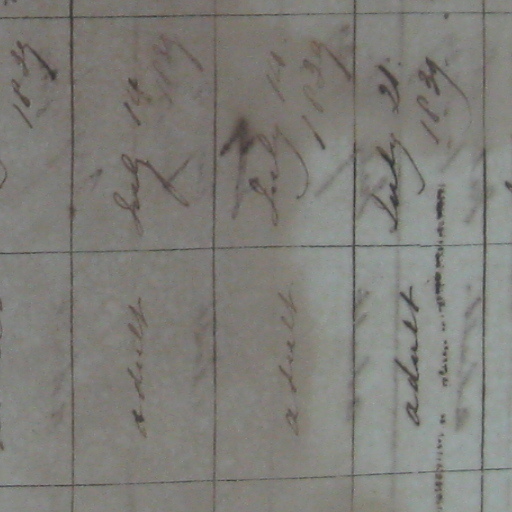 1839
adult July 14
1839
adult July 14
1839
adult July 21.
1839.